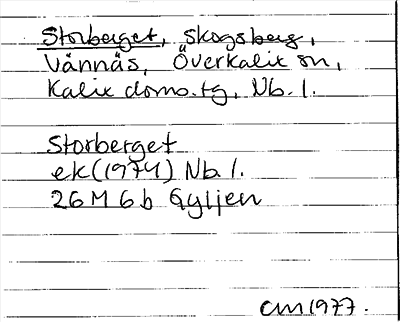 Storberget, skogsberg,
Vännäs, Överkalix sn,
Kalix doms.tg, Nb. l.
Storberget
ek (1974) Nb l.
26 M 6 b Gyljen
CM 1977.